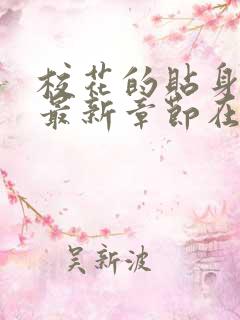 校花的贴身
最新章节在
吴新波